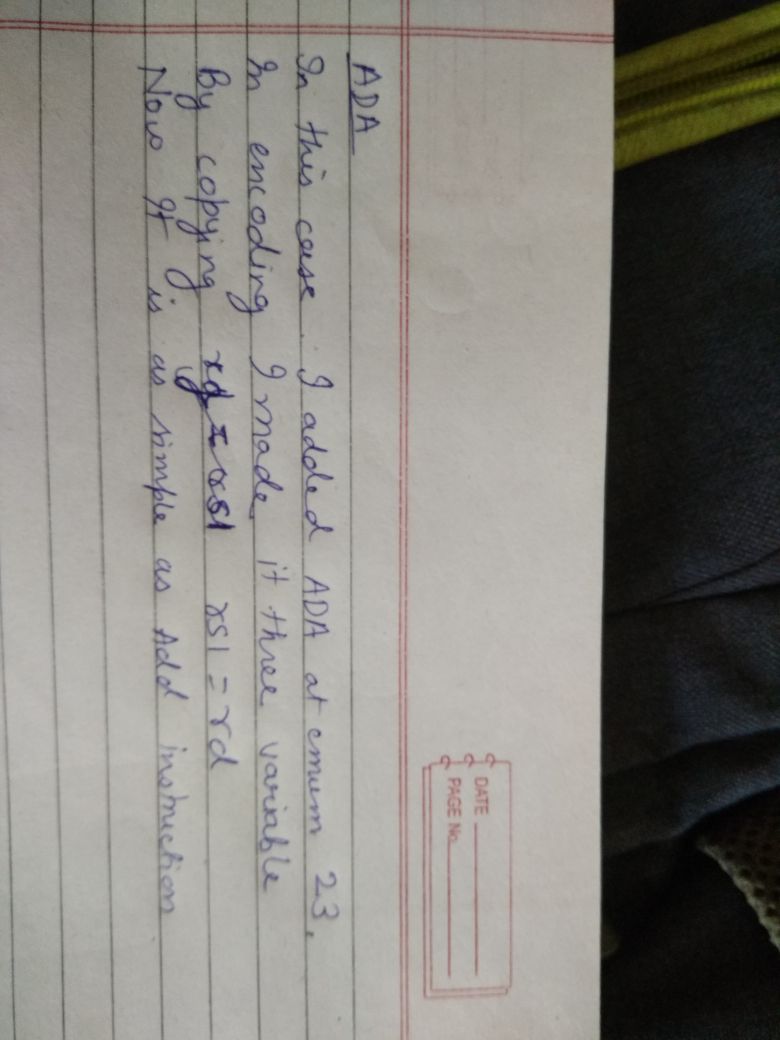 DATE
PAGE No.
ADA
In this case. I added ADA at emum 23.
In encoding I made it three variable
By copying rs1 = rd
Now It is as simple as Add instruction